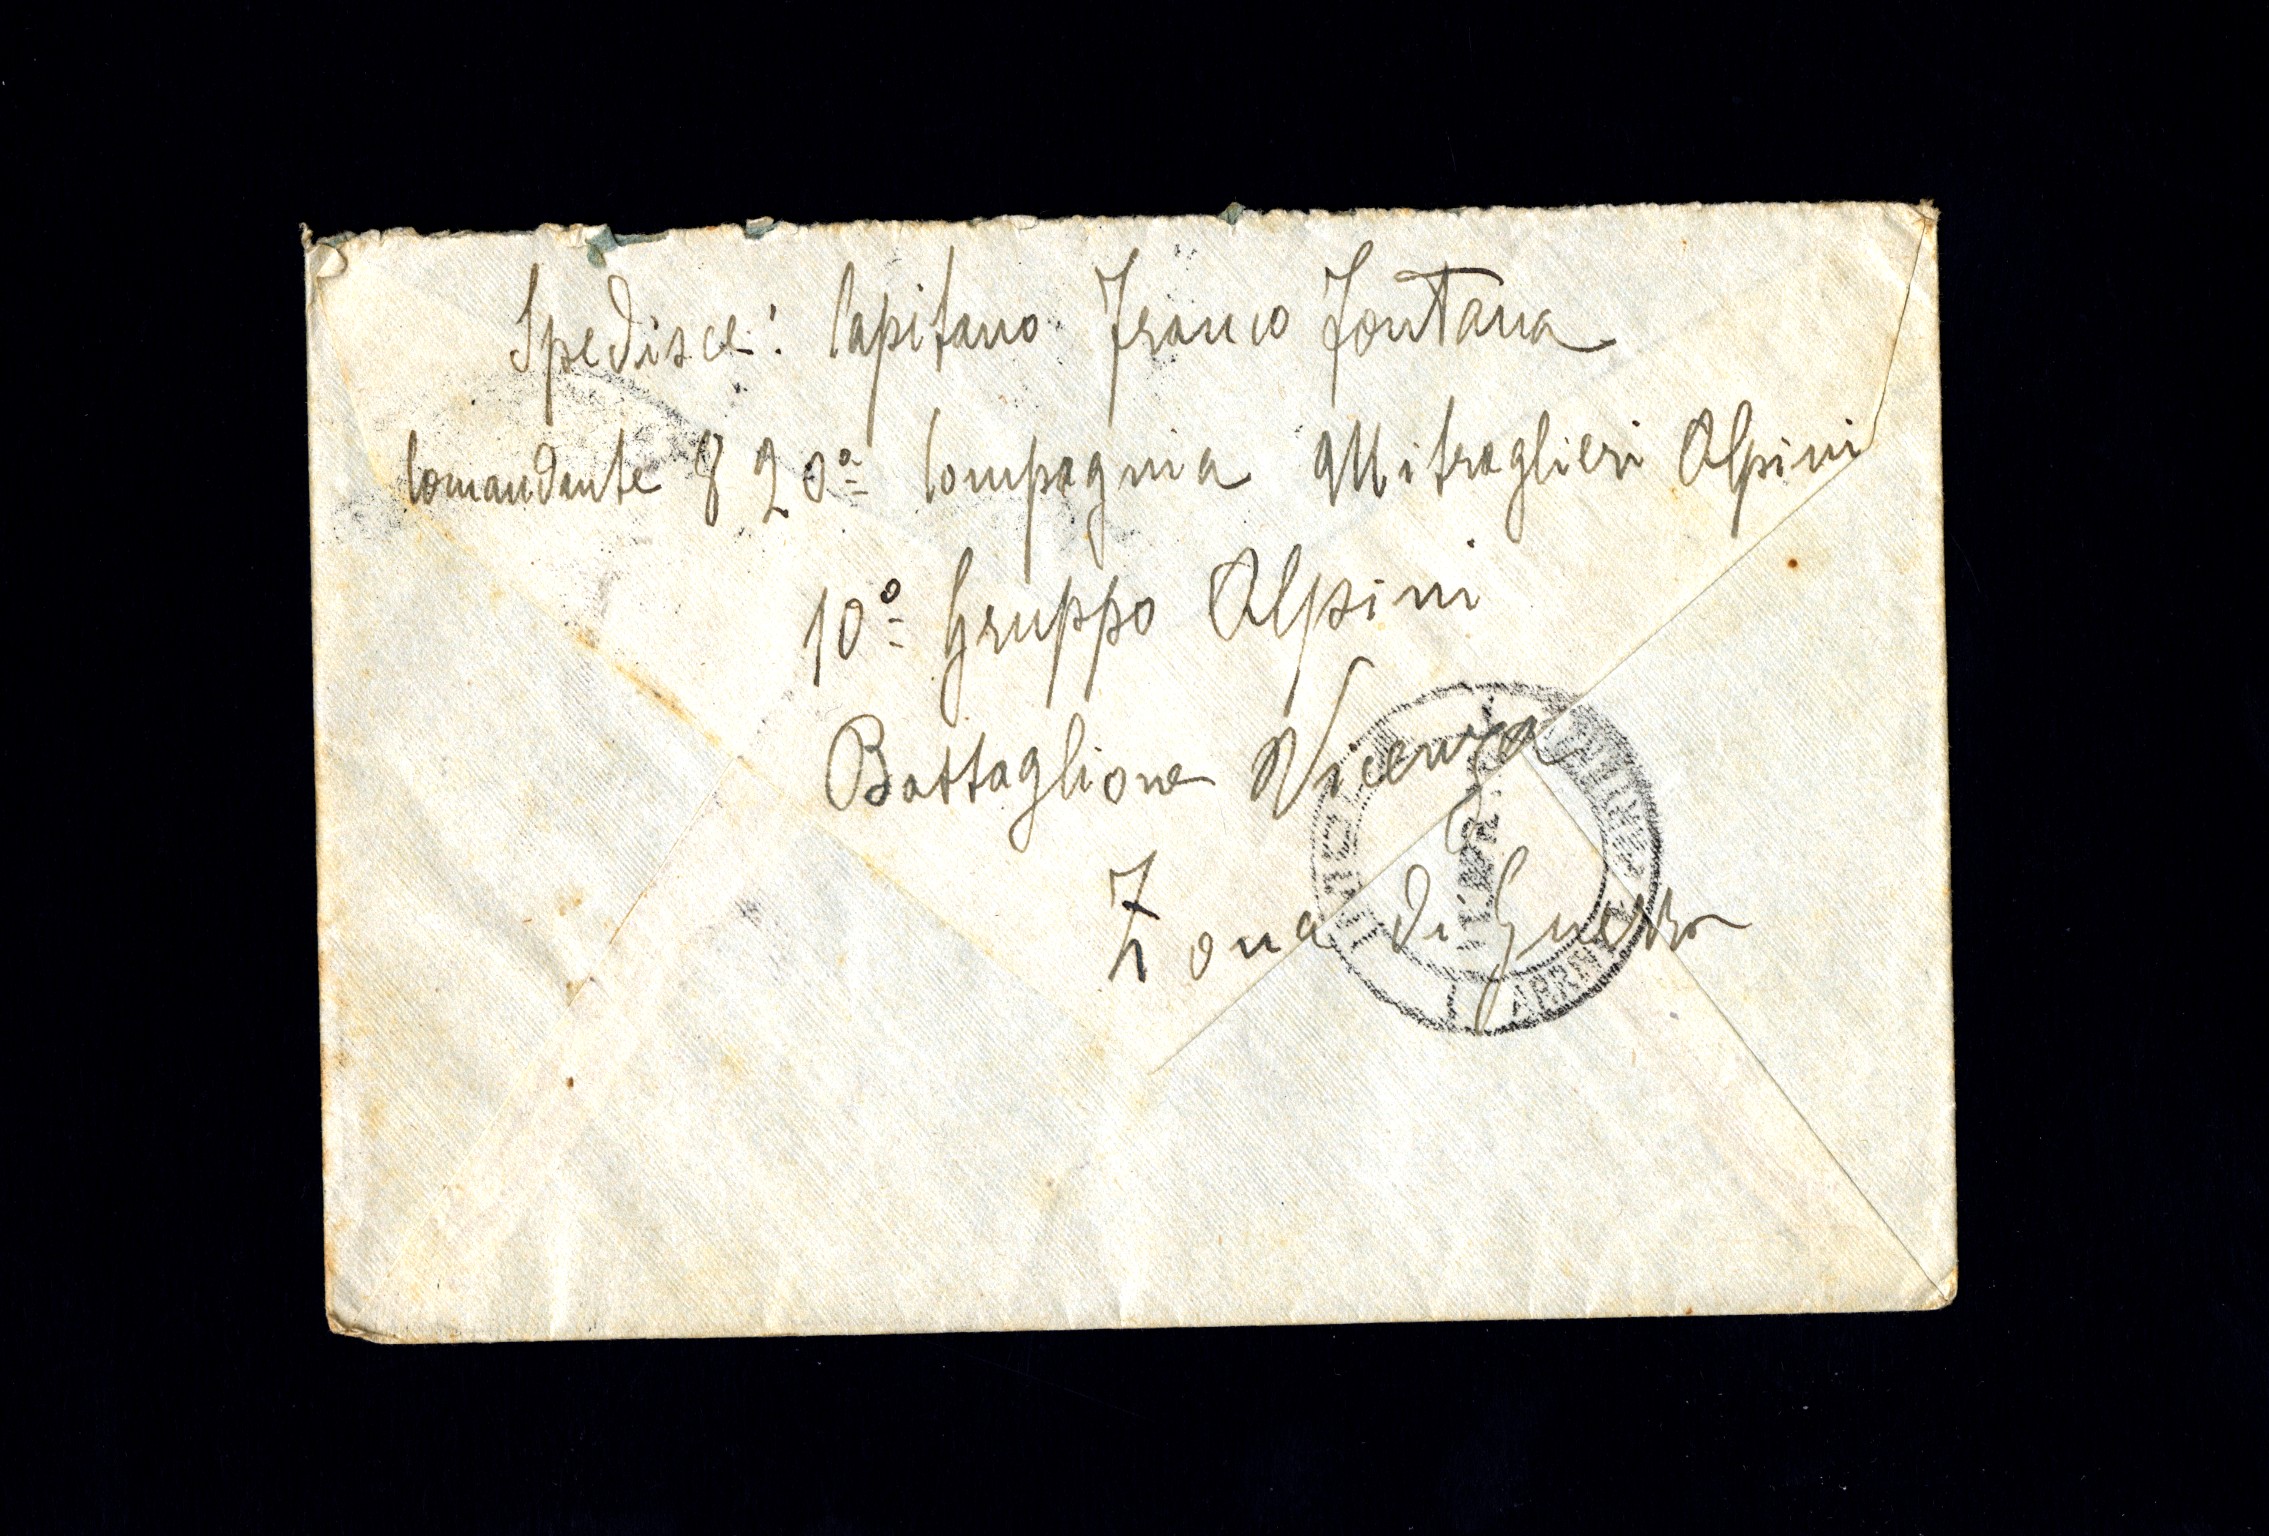 Spedisce: Capitano Franco Fontana
Comandante 820ª Compagnia Mitraglieri Alpini
10º Gruppo Alpini
Battaglione Vicenza
Zona di Guerra